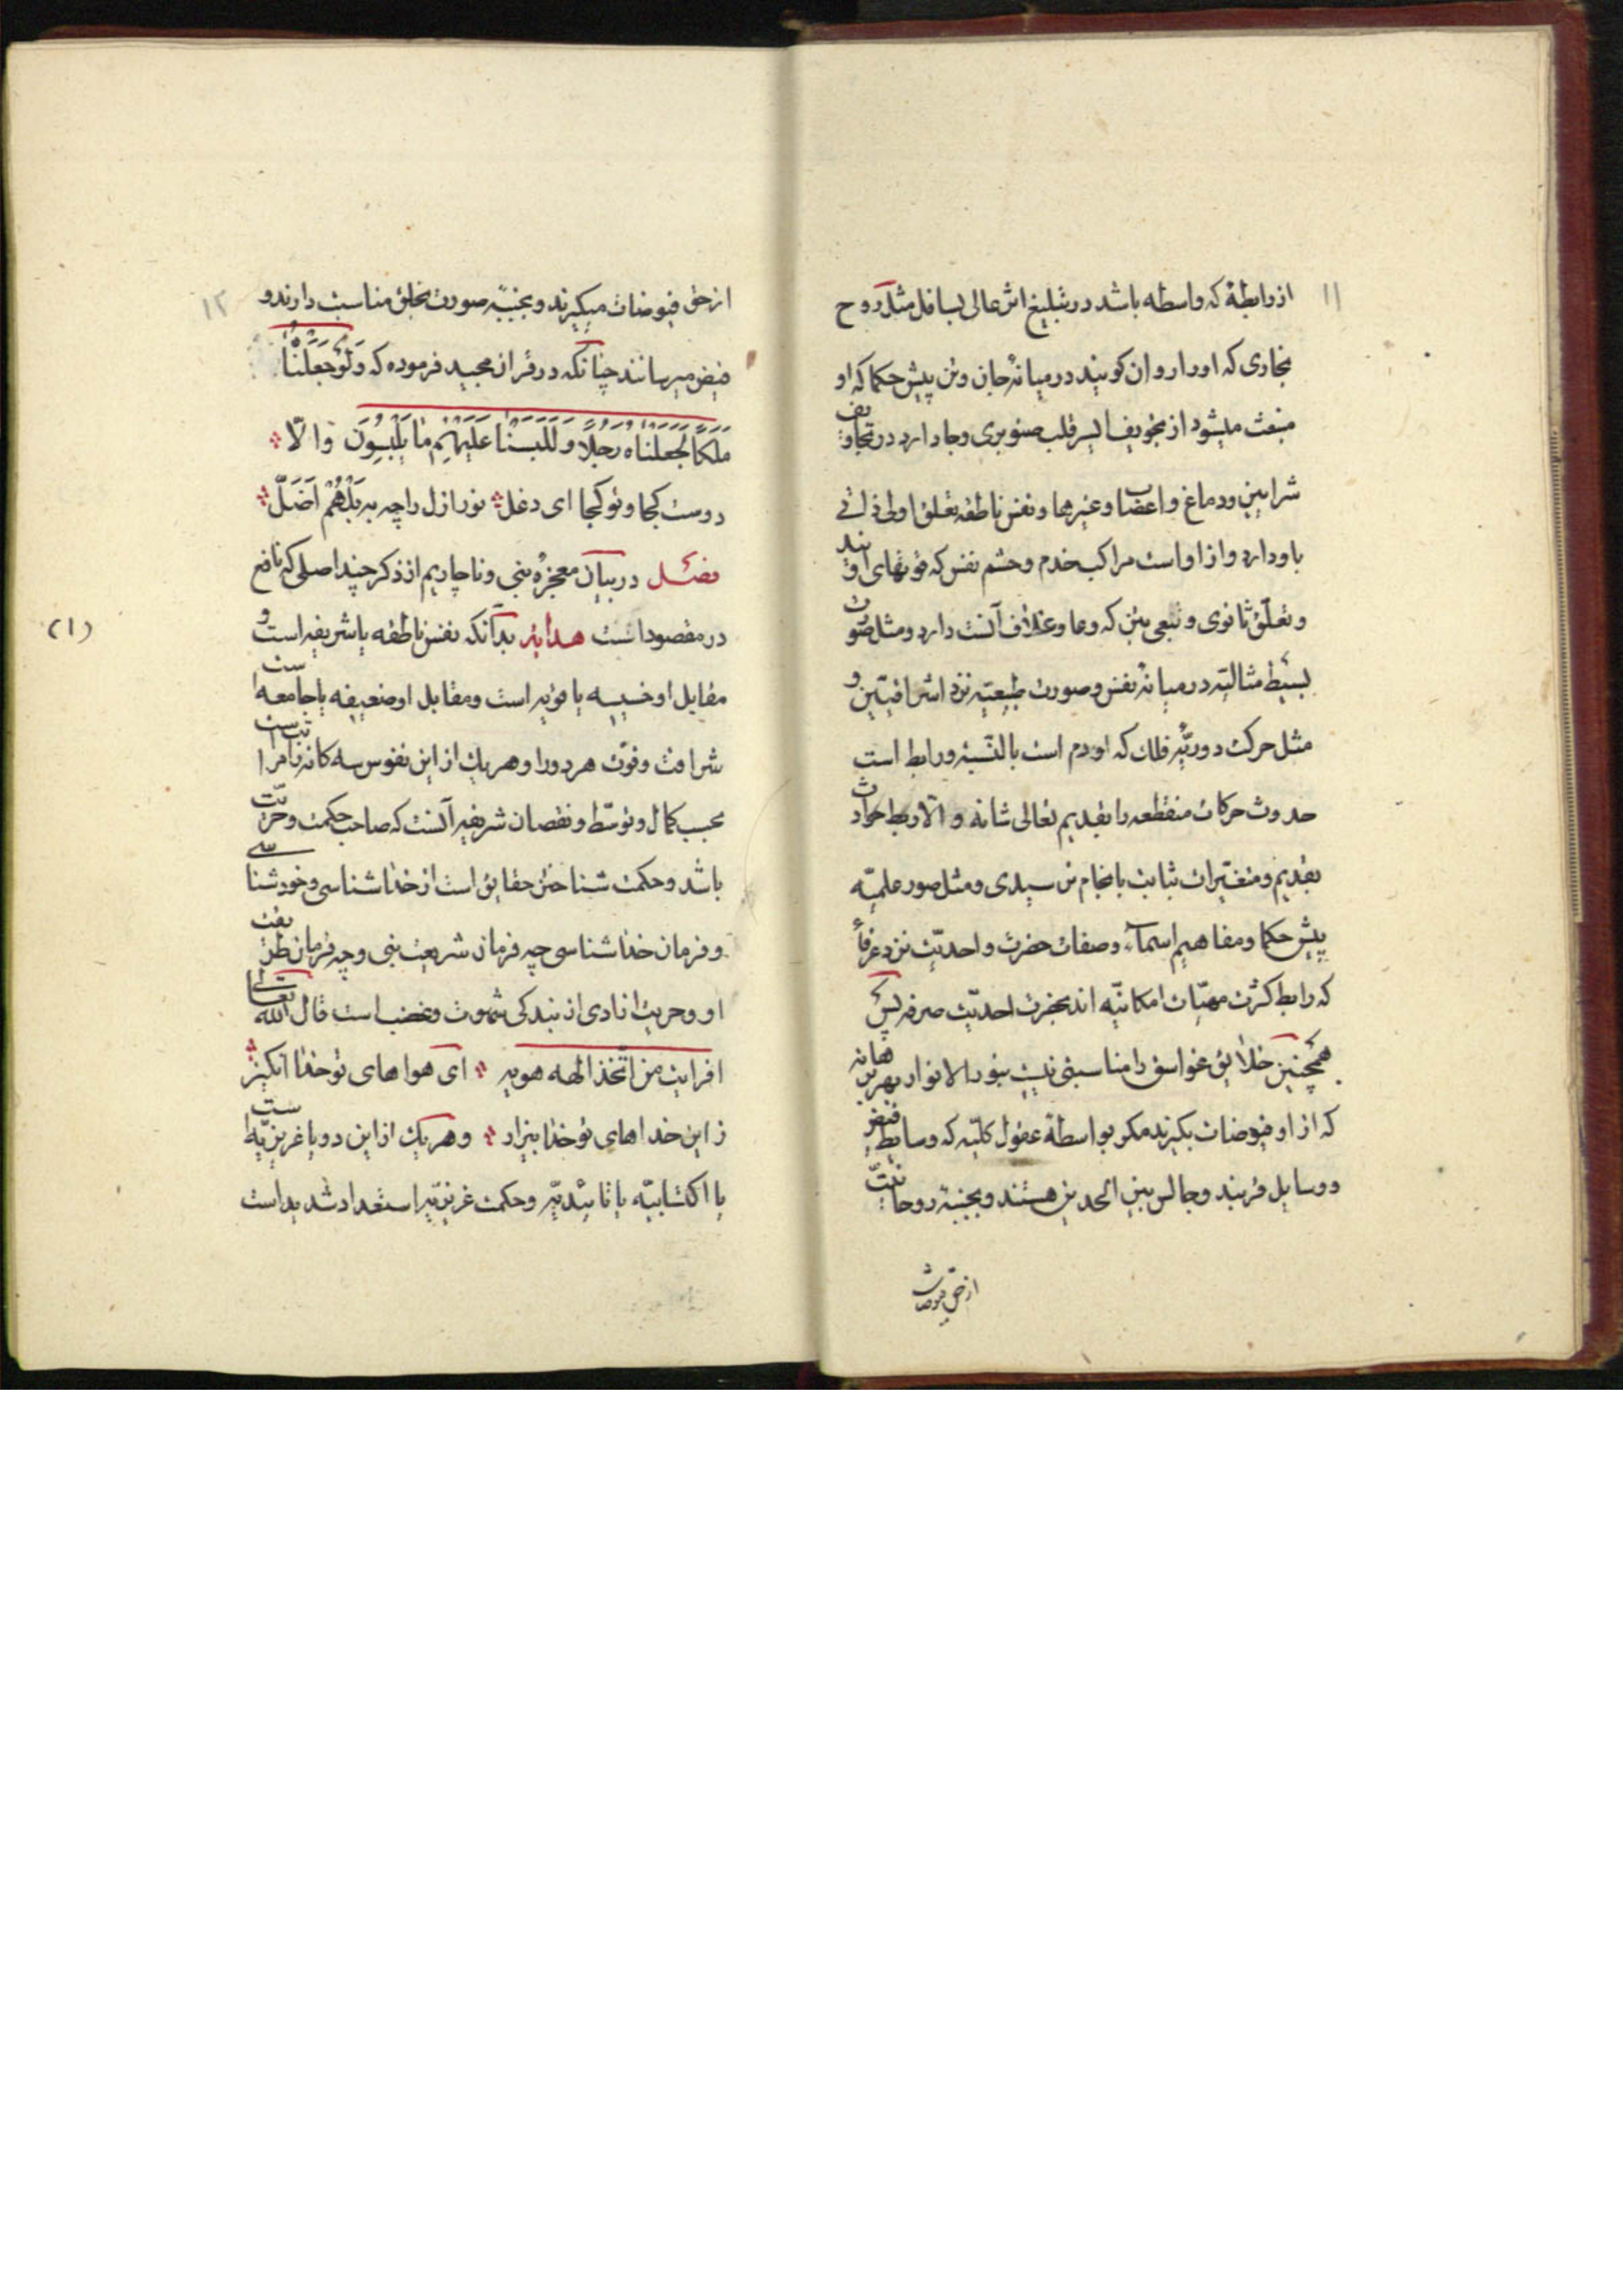 ۱۱
از رابطهٔ که واسطه باشد در تبلیغ اثر عالی بسافل مثل روح
بخاری که او را روان کویند در میانهٔ جان و تن پیش حکما که او
منبعث میشود از تجویف ایسر قلب صنوبری و جا دارد در تجاویف
شرایین و دماغ و اعصاب و غیرها و نفس ناطقه تعلق اولی ذاتی
باو دارد و از او است مراکب خدم و حشم نفس که قوتهای اویند
و تعلّق ثانوی و تبعی بتن که وعا و غلاف آنست دارد و مثل صورت
بسیط مثالیّه در میانهٔ نفس و صورت طبیعیّه نزد اشراقیّین و
مثل حرکت دوریّهٔ فلک که او دم است بالنّسبه و رابط است
حدوث حرکات منقطعه را بقدیم تعالی شانه و الّا ربط حوادث
بقدیم و متغیّرات بثابت بانجام نرسیدی و مثل صور علمیّه
پیش حکما و مفاهیم اسمآء و صفات حضرت واحدیّت نزد عرفاء
که رابط کثرت مهیّات امکانیّه اند بحضرت احدیّت صرفه پس
همچنین خلایق غواسق را مناسبتی نیست بنور الانوار بهر
که از او فیوضات بکیرند مکر بواسطهٔ عقول کلیّه که وسایط فیض
و وسایل قربند و جالس بین الحدین هستند و بجنبهٔ روحانیّت
از حق فیوضات
۱۲
از حق فیوضات میکیرند و بجنبهٔ صورت بخلق مناسبت دارند و
فیض میرسانند چنانکه در قرآن مجید فرموده که وَلَوْ جَعَلْنٰاهُ
مَلَکاً لَجَعَلْنٰاهُ رَجُلاً وَلَلَبَسْنٰا عَلَیْهِمْ مٰا یَلْبِسُونَ والّا
دوست کجا و تو کجا ای دغل نور ازل را چه به بَلْ هُمْ اَضَلّ
فصل در بیان معجزهٔ نبی و ناچاریم از ذکر چند اصلی که نافع
در مقصود است هدایة بدآنکه نفس ناطقه یا شریفه است و
(۱)
مقابل او خسیسه یا قویه است و مقابل او ضعیفه یا جامعه است
شرافت و قوّت هر دو را و هر یک از این نفوس سه کانه را مراتبست
بحسب کمال و توسّط و نقصان شریفه آنست که صاحب حکمت و حرّیت
باشد و حکمت شناختن حقایق است از خداشناسی و خودشناسی
و فرمان خداشناسی چه فرمان شریعت نبی و چه فرمان طریقت
او و حریت ازادی از بندکی شهوت و غضب است قال الله تعالی
افرایت من اتّخذ الهه هویه ای هواهای تو خدا انکیز
زاین خداهای تو خدا بیزار و هر یک از این دو یا غریزیّه است
یا اکتسابیّه یا تائیدیّه و حکمت غریزیّه استعداد شدید است